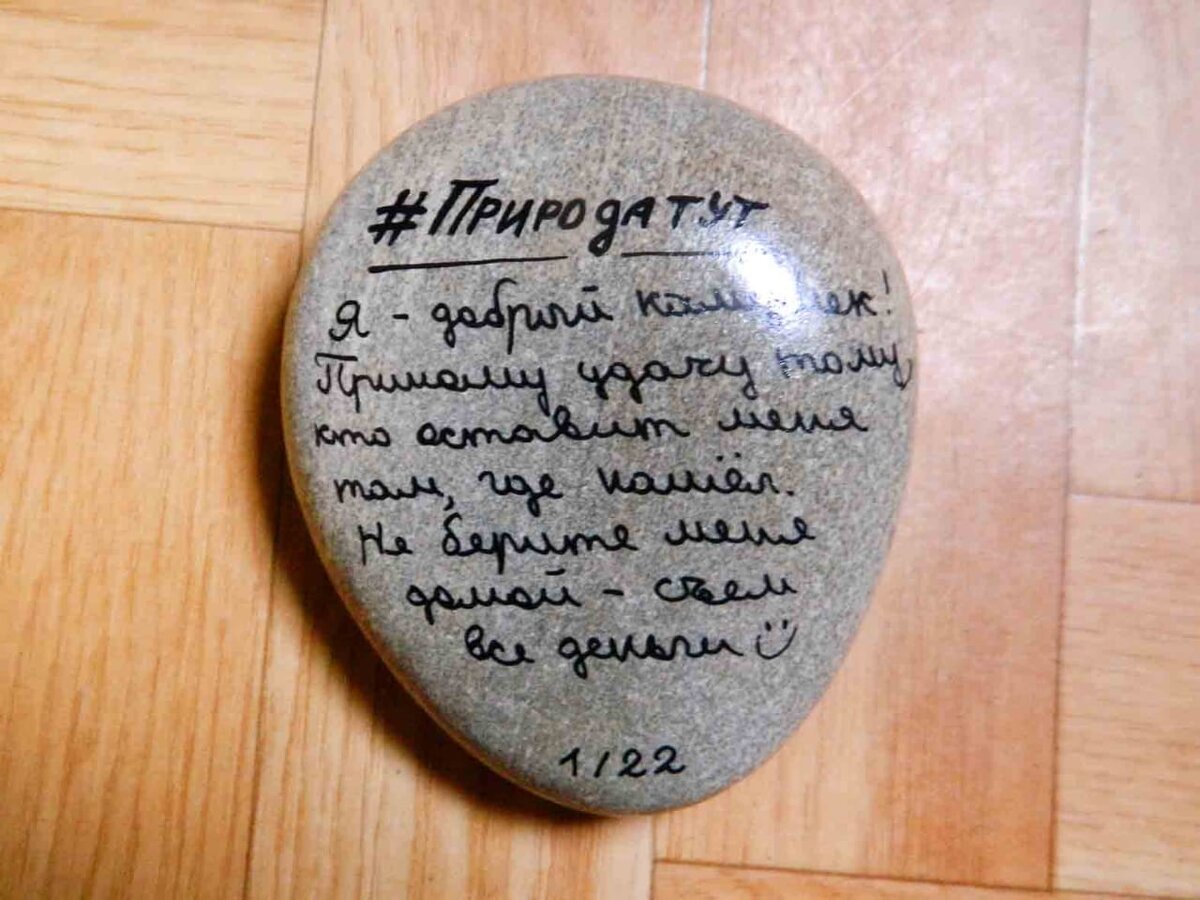 #Природатут
Я - добрый камушек!
Принашу удачу тому,
кто оставит меня
там, где нашёл.
Не берите меня
домой - съем
все деньги
1/22